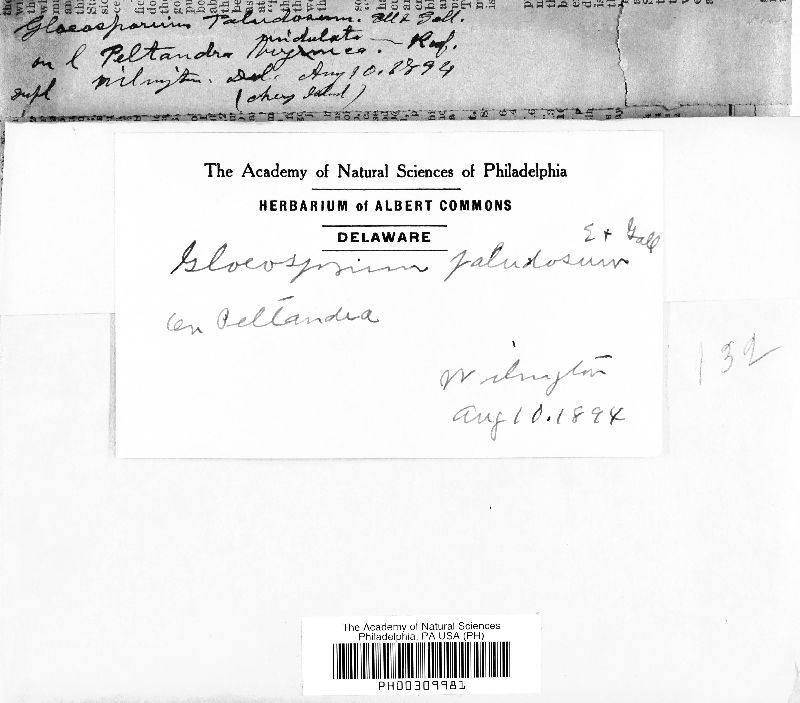 Gloeosporium Paludosum. Ell & Gall.
undulata
on l Peltandra Virginica. — Raf.
Wilmington. Del. Aug 10. 1894
supl (Cherry Island)
The Academy of Natural Sciences of Philadelphia
HERBARIUM of ALBERT COMMONS
DELAWARE
E & Gall
Gloeosporium paludosum
On Peltandra
Wilmington
Aug 10. 1894
132
The Academy of Natural Sciences
Philadelphia, PA USA (PH)
PH00309981